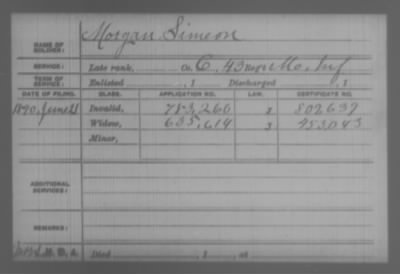 NAME OF SOLDIER: Morgan Simeon
SERVICE: Late rank, Co. C, 43 Regt Mo. Inf
TERM OF SERVICE: Enlisted , 1 Discharged , 1
DATE OF FILING. CLASS. APPLICATION NO. LAW. CERTIFICATE NO.
1890, June Invalid, 783,266 802637
Widow, 635,614 3 453043
Minor,
ADDITIONAL SERVICES:
REMARKS:
Died , 1 , at